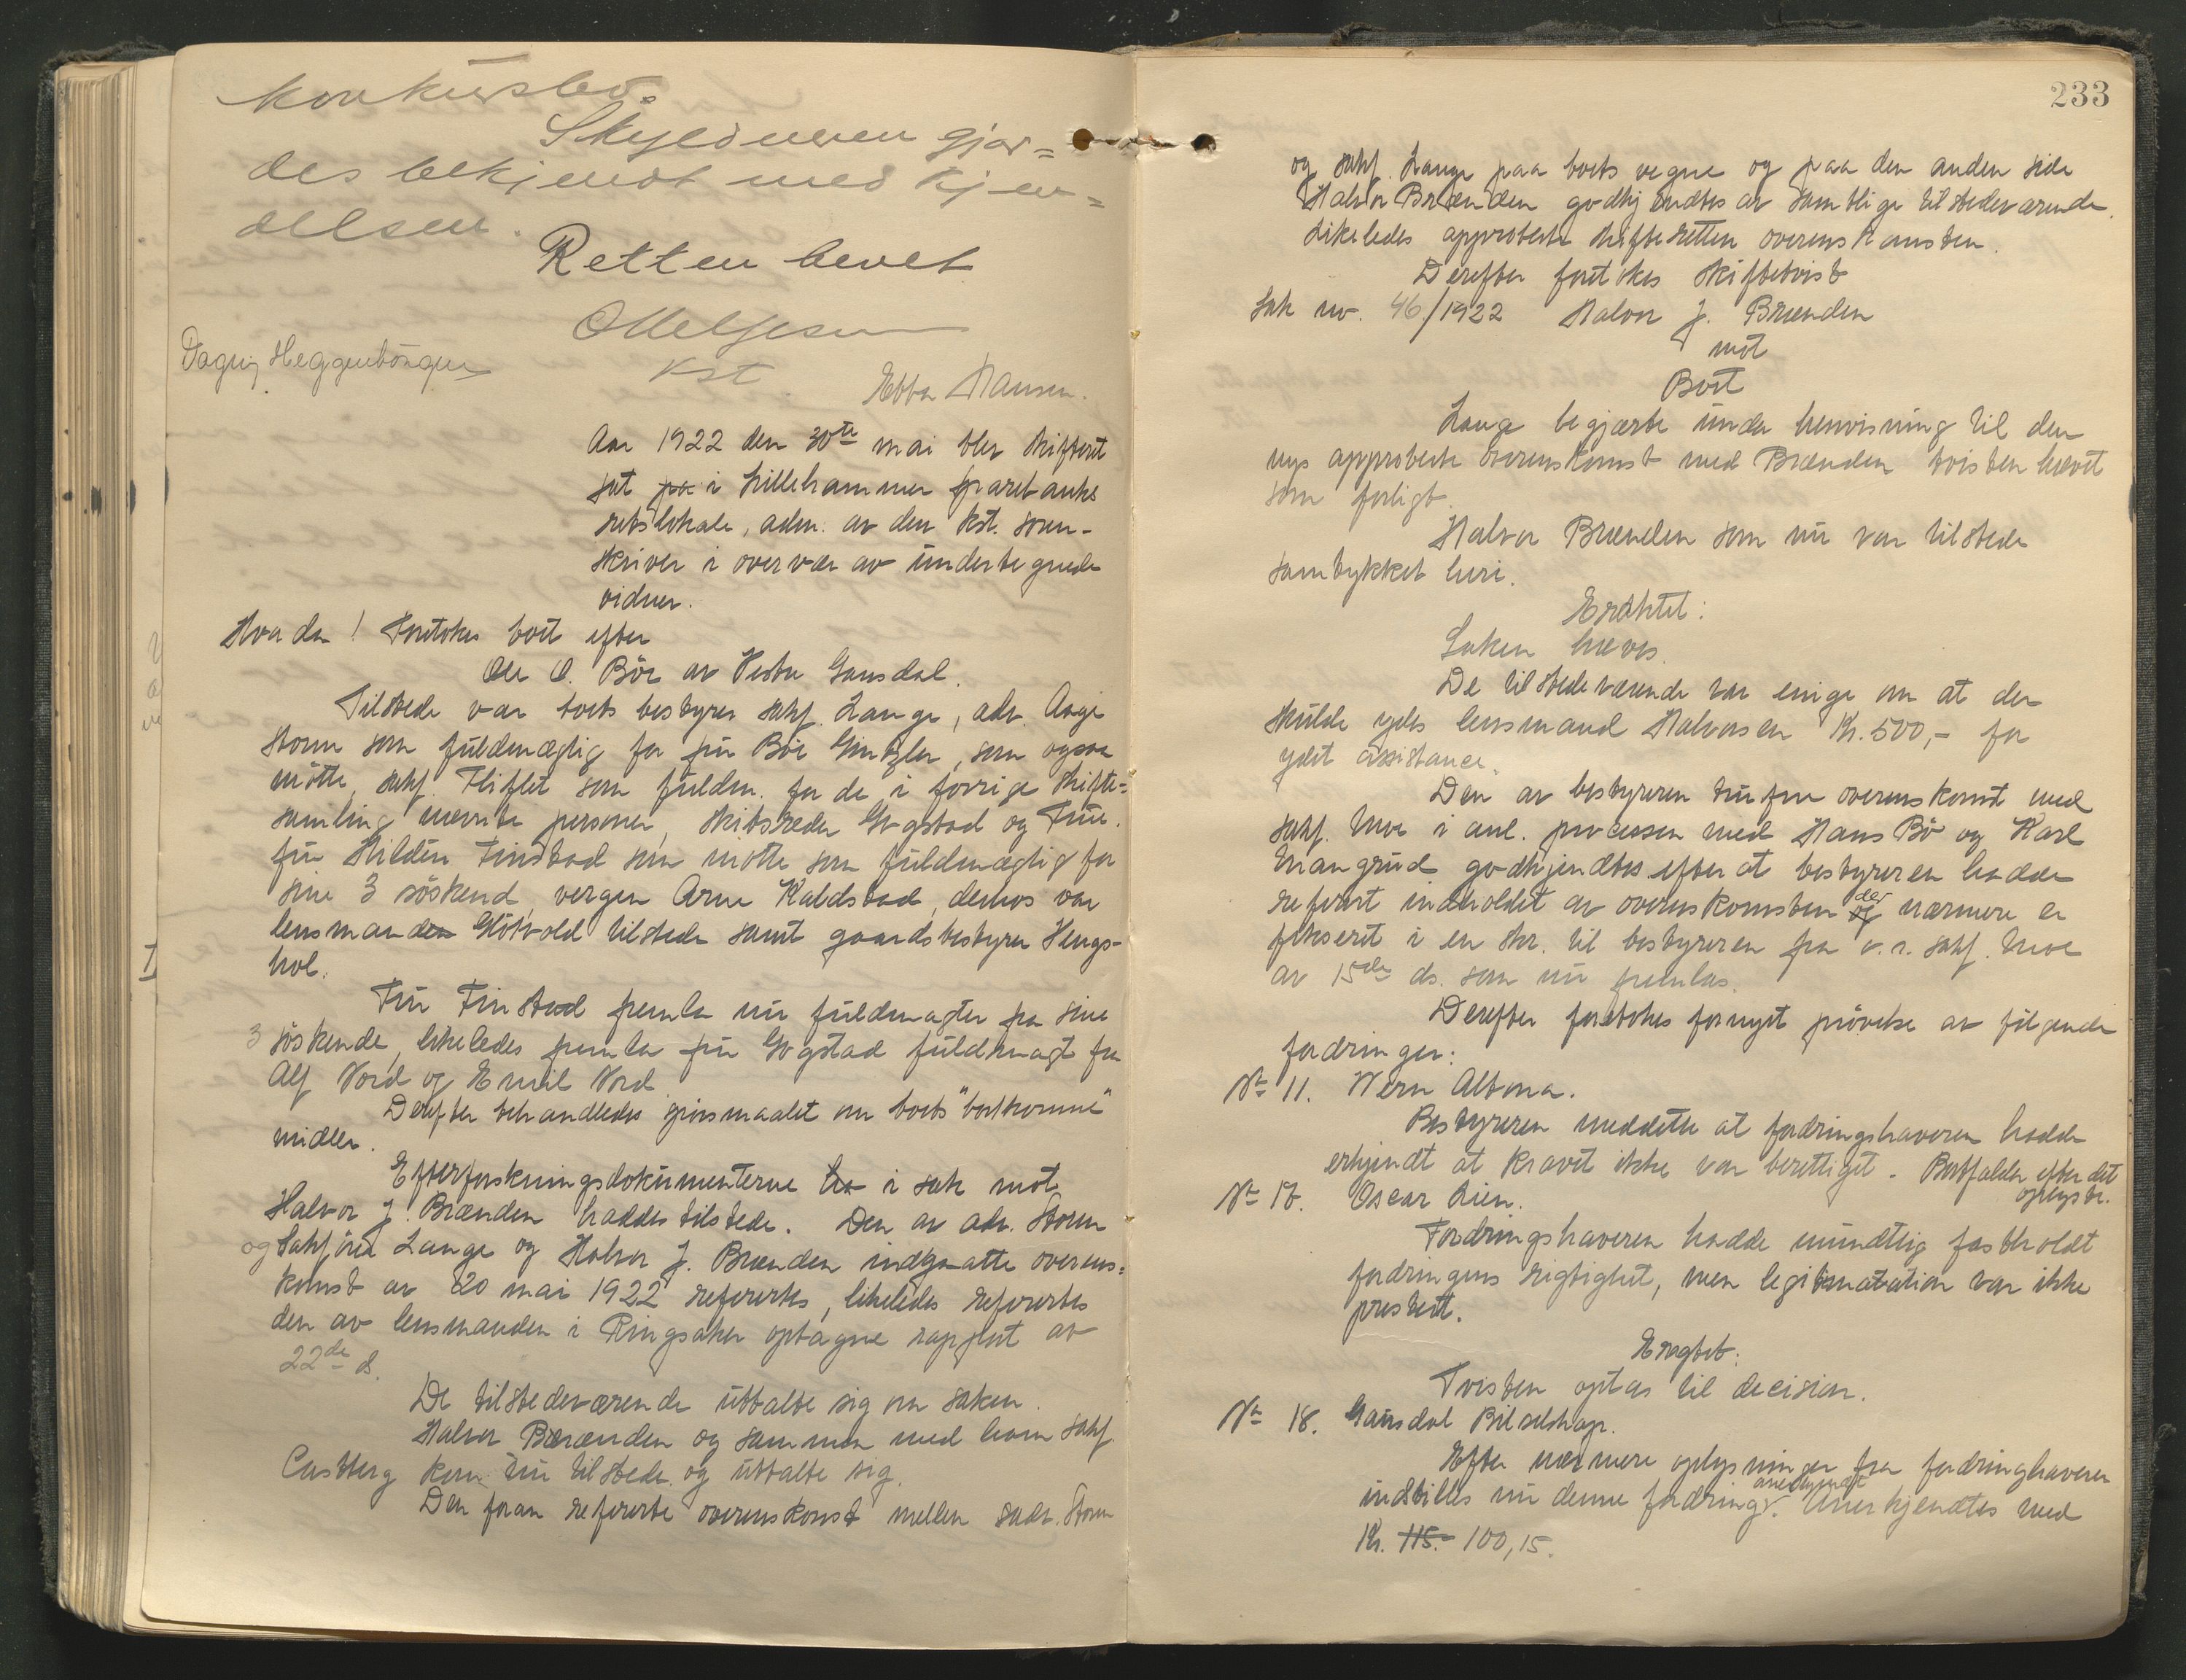 konkursbo.
Skyldneren gjør=
des bekjendt med kjen=
delsen.
Retten hevet
Kst.
Ebba Hansen.
Aar 1922 den 30te mai blev skifteret
sat pa i Lillehammer sparebanks
retslokale, adm. av den kst. soren-
skriver i overvær av undertegnede
vidner.
Hvorda! Foretokes boet efter
Ole O. Böe av Vestre Gausdal.
Tilstede var boets bestyrer sakf. Lange, adv. Aage
Storm som fuldmægtig for fru Böe Gintzler, som ogsaa
mötte, sakf. Fliflet som fuldm. for de i forrige skifte=
samling nævnte personer, skibsreder Gogstad og Frue.
fru Hildur Finstad som mötte som fuldmægtig for
sine 3 söskend, vergen Arne Kaldstad, derhos var
lensmanden Glötvold tilstede samt gaardsbestyrer Hengs-
hol.
Fru Finstad fremla nu fuldmagter fra sine
3 söskende, likeledes fremla fru Gogstad fuldmagt fra
Alf Nord og Emil Nord
Derefter behandledes spörsmaalet om boets "bortkomne"
midler.
Efterforskningsdokumenterne i sak mot
Halvor J. Brænden haddes tilstede. Den av adv. Storm
og Sakförer Lange og Halvor J. Brænden indgaatte overens=
komst av 20 mai 1922 referertes, likeledes referertes
den av lensmanden i Ringsaker optagne rapport av
22de ds.
De tilstedeværende uttalte sig om saken.
Halvor Brænden og sammen med ham sakf.
Castberg kom nu tilstede og uttalte sig.
Den foran refererte overenskomst mellem adv. Storm
233
og sakf. Lange paa boets vegne og paa den anden side
Halvor Brænden godkjendtes av samtlige tilstedeværende.
Likeledes approberte skifteretten overenskomsten.
Derefter foretokes skiftetvist
Sak nr. 46/1922 Halvor J. Brænden
mot
Boet
Lange begjærte under henvisning til den
nys approberte overenskomst med Brænden tvisten hævet
som forligt.
Halvor Brænden som nu var tilstede
samtykket heri.
Eragtet:
Saken hæves.
De tilstedeværende var enige om at der
skulde ydes lensmand Halvorsen Kr. 500,- for
ydet assistance.
Den av bestyreren trufne overenskomst med
sakf. Moe i anl. processen med Hans Bö og Karl
godkjendtes efter at bestyreren hadde
referert indholdet av overenskomsten og der nærmere er
fikseret i en skr. til bestyreren fra o.r. sakf. Moe
av 15de ds. som nu fremlas.
Derefter foretokes fornyet prövelse av fölgende
fordringer:
No 11. Wern Altona.
Bestyreren meddelte at fordringshaveren hadde
erkjendt at kravet ikke var berettiget. Bortfalder efter det
oplyste.
No 17. Oscar Lien.
Fordringshaveren hadde mundtlig fastholdt
fordringens rigtighet, men legitimatation var ikke
prestert.
Eragtet:
Tvisten optas til decision.
No 18. Gausdal Bilselskap.
Efter nærmere oplysninger fra fordringhaveren
indstilles nu denne fordring anerkjendt. Anerkjendtes med
Kr. 115.- 100,15.